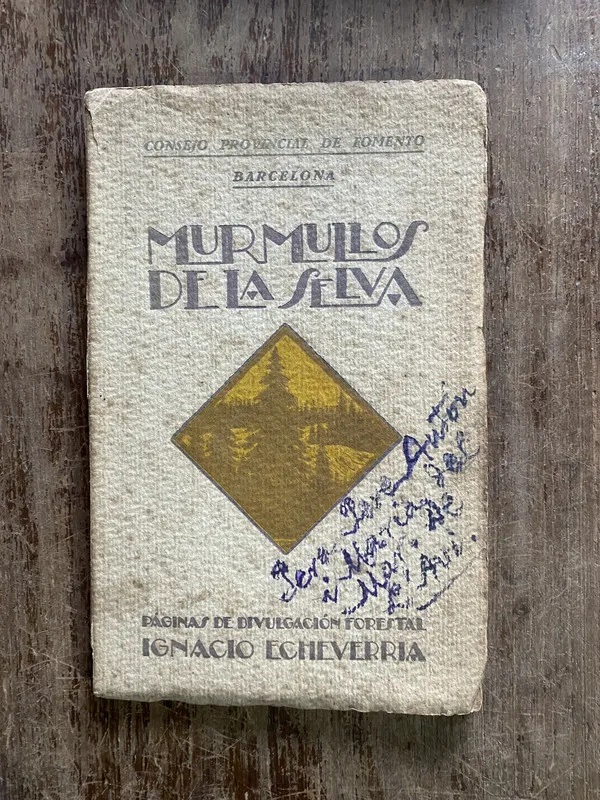 CONSEJO PROVINCIAL DE FOMENTO
BARCELONA
MURMULLOS
DE LA SELVA
Pere Anton
i Maria del
Mar. De
l'Avi.
PÁGINAS DE DIVULGACIÓN FORESTAL
IGNACIO ECHEVERRIA